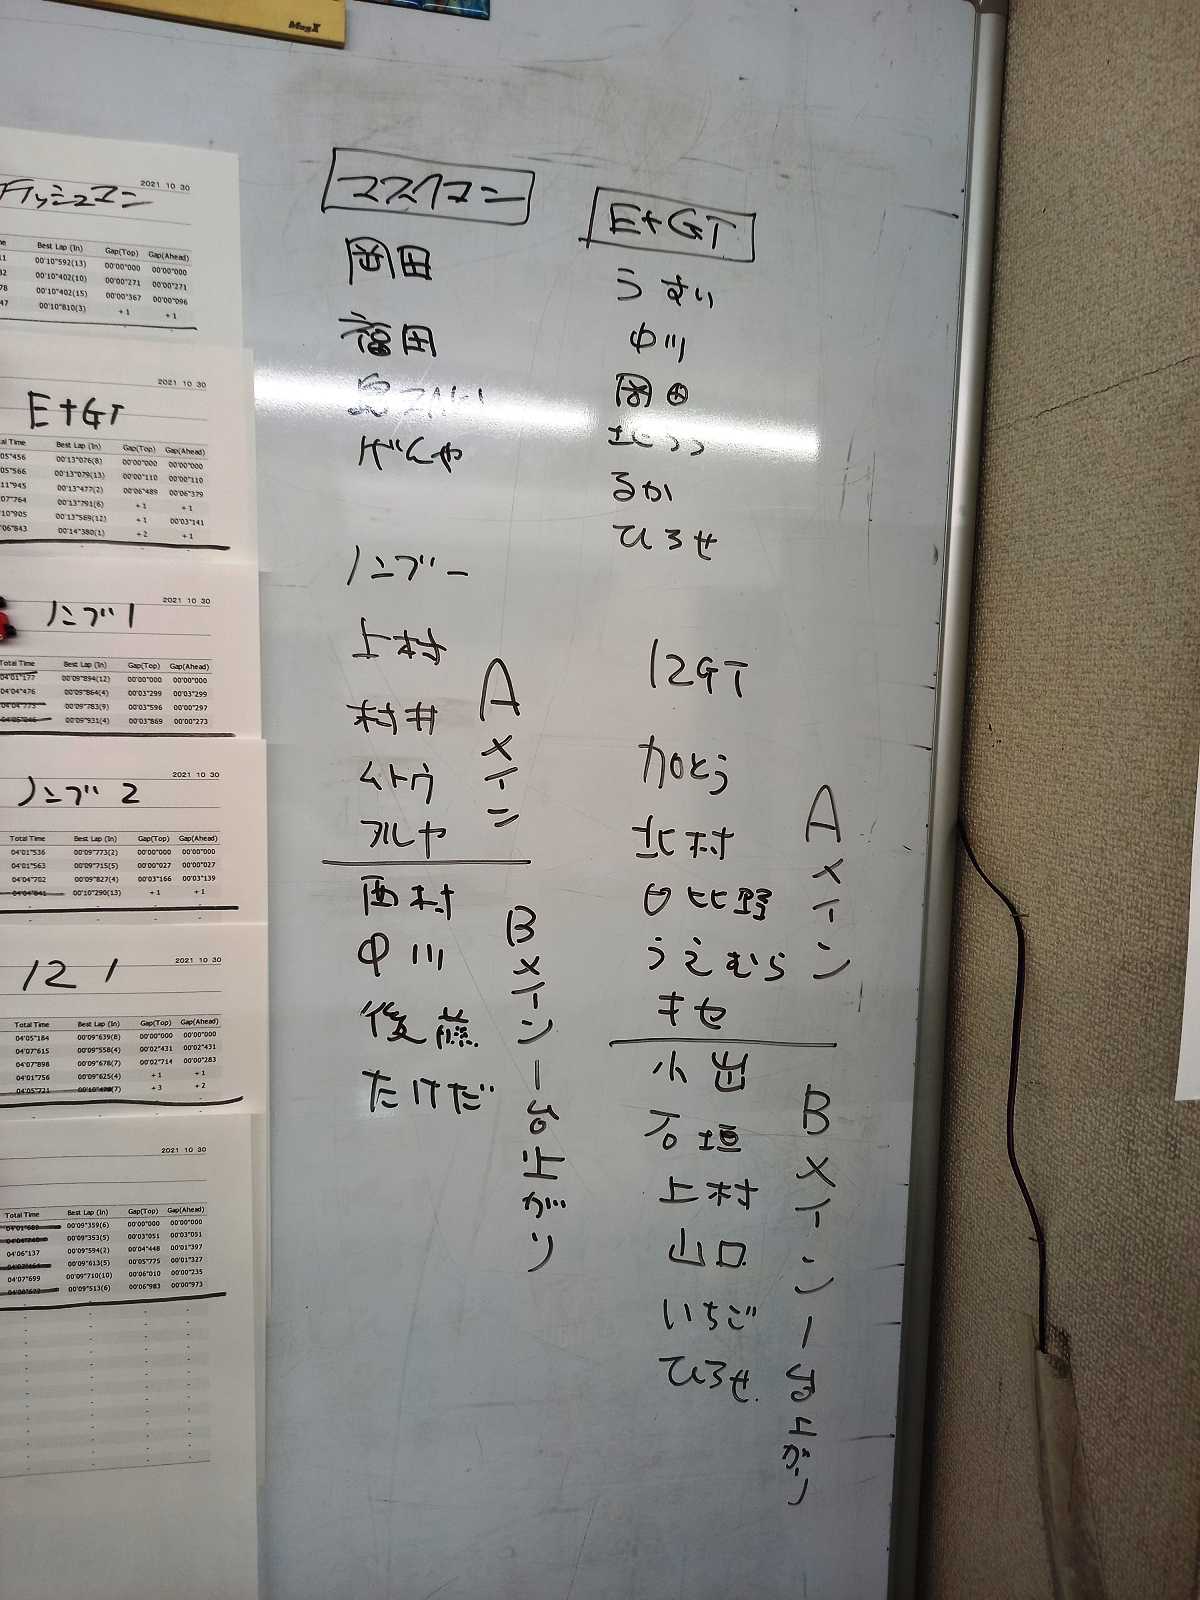 MugX
2021 10 30
Best Lap (In) Gap(Top) Gap(Ahead)
00'10"592(13) 00'00"000 00'00"000
00'10"402(10) 00'00"271 00'00"271
00'10"402(15) 00'00"367 00'00"096
00'10"810(3) +1 +1
2021 10 30
E+GT
Total Time Best Lap (In) Gap(Top) Gap(Ahead)
05"456 00'13"076(8) 00'00"000 00'00"000
05"566 00'13"079(13) 00'00"110 00'00"110
11"945 00'13"477(2) 00'06"489 00'06"379
07"764 00'13"791(6) +1 +1
10"905 00'13"569(12) +1 00'03"141
06"843 00'14"380(1) +2 +1
2021 10 30
ノンブ1
Total Time Best Lap (In) Gap(Top) Gap(Ahead)
04'01"177 00'09"894(12) 00'00"000 00'00"000
04'04"476 00'09"864(4) 00'03"299 00'03"299
04'04"773 00'09"783(9) 00'03"596 00'00"297
04'05"046 00'09"931(4) 00'03"869 00'00"273
2021 10 30
ノンブ2
Total Time Best Lap (In) Gap(Top) Gap(Ahead)
04'01"536 00'09"773(2) 00'00"000 00'00"000
04'01"563 00'09"715(5) 00'00"027 00'00"027
04'04"702 00'09"827(4) 00'03"166 00'03"139
04'04"841 00'10"290(13) +1 +1
2021 10 30
12 1
Total Time Best Lap (In) Gap(Top) Gap(Ahead)
04'05"184 00'09"639(8) 00'00"000 00'00"000
04'07"615 00'09"558(4) 00'02"431 00'02"431
04'07"898 00'09"678(7) 00'02"714 00'00"283
04'01"756 00'09"625(4) +1 +1
04'05"721 +3 +2
2021 10 30
Total Time Best Lap (In) Gap(Top) Gap(Ahead)
00'09"359(6) 00'00"000 00'00"000
00'09"353(5) 00'03"051 00'03"051
04'06"137 00'09"594(2) 00'04"448 00'01"397
00'09"613(5) 00'05"775 00'01"327
04'07"699 00'09"710(10) 00'06"010 00'00"235
00'09"513(6) 00'06"983 00'00"973
岡田
福田
げんや
ノンブー
上村
村井
ムトウ
フルヤ
Aメイン
西村
中川
後藤
たけだ
Bメイン一台上がり
E+GT
うすい
中川
岡田
るか
ひろせ
12GT
加とう
北村
日比野
うえむら
キセ
Aメイン
小出
石垣
上村
山口
いちご
ひろせ
Bメイン一台上がり